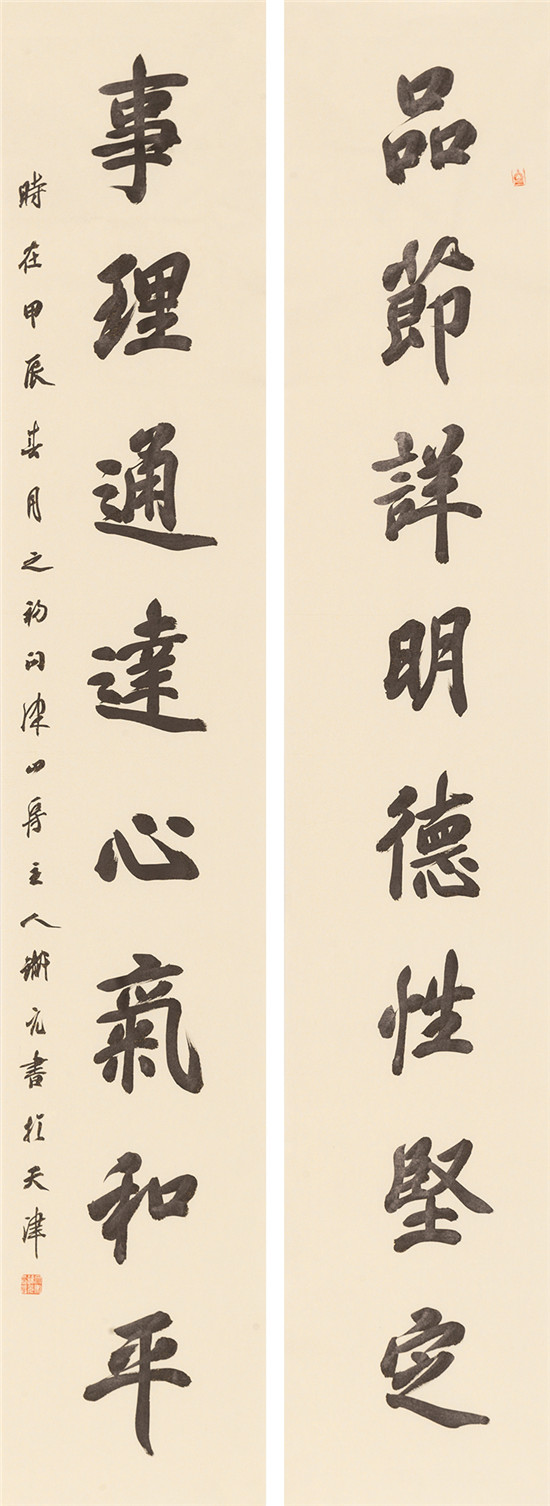 品節詳明德性堅定
事理通達心氣和平
時在甲辰春月之初問津山房主人 元書於天津